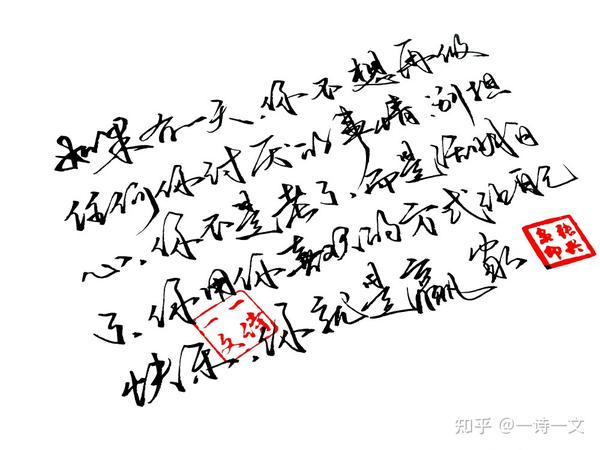 如果有一天,你不想再做
任何你讨厌的事情,别担
心,你不是老了、而是活明白
了、你用你喜欢的方式让自己
快乐,你就是赢家
一诗一文
知乎 @一诗一文